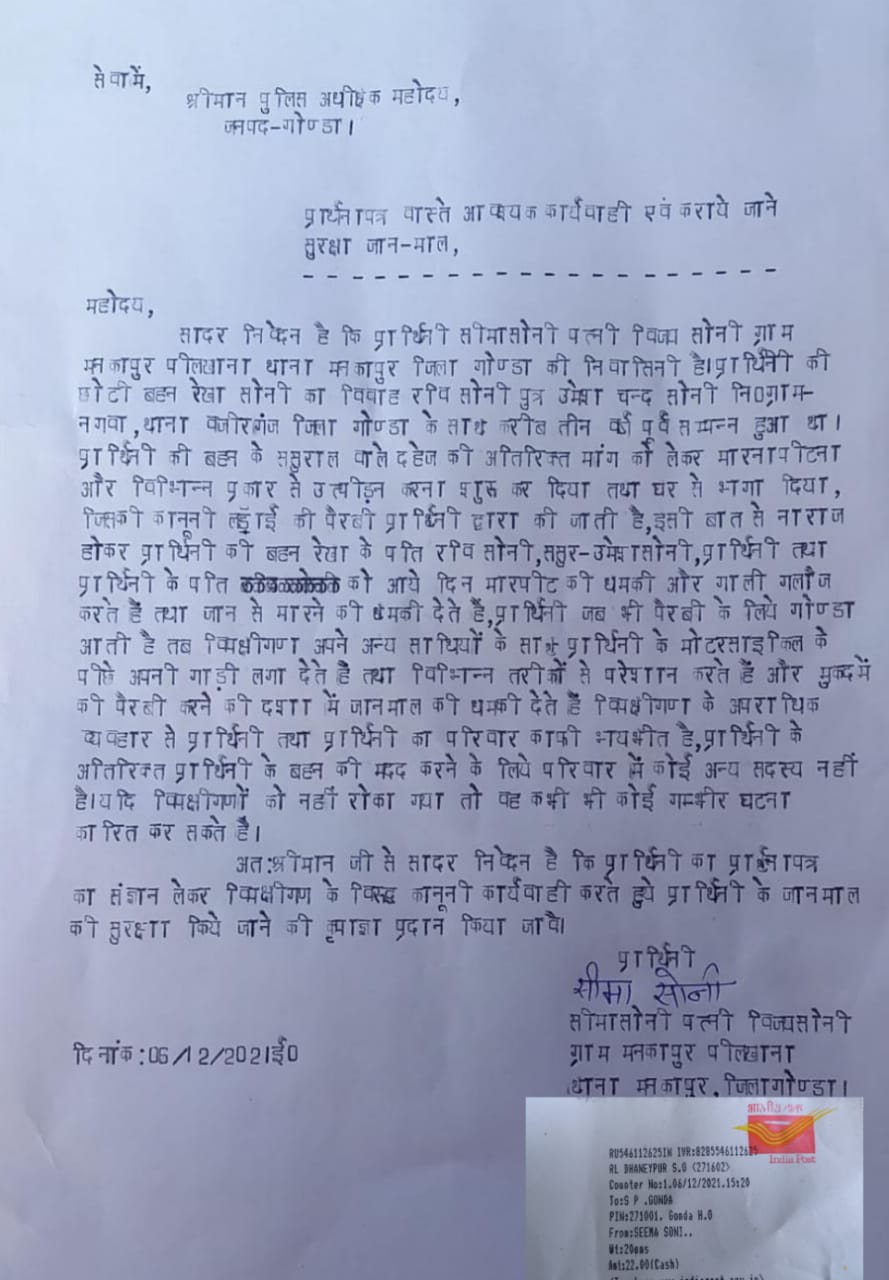 सेवामें,
श्रीमान पुलिस अधीक्षक महोदय,
जनपद-गोण्डा।
प्रार्थनापत्र वास्ते आवश्यक कार्यवाही एवं कराये जाने
सुरक्षा जान-माल,
महोदय,
सादर निवेदन है कि प्रार्थिनी सीमासोनी पत्नी विजय सोनी ग्राम
मनकापुर पीलखाना थाना मनकापुर जिला गोण्डा की निवासिनी है।प्रार्थिनी की
छोटी बहन रेखा सोनी का विवाह रवि सोनी पुत्र उमेश चन्द सोनी नि0ग्राम-
नगवा,थाना वजीरगंज जिला गोण्डा के साथ करीब तीन वर्ष पूर्व सम्पन्न हुआ था।
प्रार्थिनी की बहन के ससुराल वाले दहेज की अतिरिक्त मांग को लेकर मारनापीटना
और विभिन्न प्रकार से उत्पीड़न करना शुरू कर दिया तथा घर से भागा दिया,
जिसकी कानूनी लड़ाई की पैरबी प्रार्थिनी द्वारा की जाती है,इसी बात से नाराज
होकर प्रार्थिनी की बहन रेखा के पति रवि सोनी,ससुर-उमेशसोनी,प्रार्थिनी तथा
प्रार्थिनी के पति को आये दिन मारपीट की धमकी और गाली गलौज
करते हैं तथा जान से मारने की धमकी देते है,प्रार्थिनी जब भी पैरबी के लिये गोण्डा
आती है तब विपक्षीगण अपने अन्य साथियों के साथ प्रार्थिनी के मोटरसाइकिल के
पीछे अपनी गाड़ी लगा देते है तथा विभिन्न तरीकों से परेशान करते है और मुकदमें
की पैरबी करने की दशा में जानमाल की धमकी देते है विपक्षीगण के अपराधिक
व्यवहार से प्रार्थिनी तथा प्रार्थिनी का परिवार काफी भयभीत है,प्रार्थिनी के
अतिरिक्त प्रार्थिनी के बहन की मदद करने के लिये परिवार में कोई अन्य सदस्य नहीं
है।यदि विपक्षीगणों को नहीं रोका गया तो वह कभी भी कोई गम्भीर घटना
कारित कर सकते है।
अत:श्रीमान जी से सादर निवेदन है कि प्रार्थिनी का प्रार्थनापत्र
का संज्ञान लेकर विपक्षीगण के विरूद्ध कानूनी कार्यवाही करते हुये प्रार्थिनी के जानमाल
की सुरक्षा किये जाने की कृपाज्ञा प्रदान किया जावै।
प्रार्थिनी
सीमा सोनी
सीमासोनी पत्नी विजयसोनी
दिनांक:06/12/2021ई0
ग्राम मनकापुर पीलखाना
थाना मनकापुर,जिलागोण्डा।
भारतीय डाक
India Post
RU546112625IN IVR:8285546112625
RL DHANEYPUR S.O <271602>
Counter No:1,06/12/2021,15:20
To:S P ,GONDA
PIN:271001, Gonda H.O
From:SEEMA SONI,,
Wt:20gms
Amt:22.00(Cash)